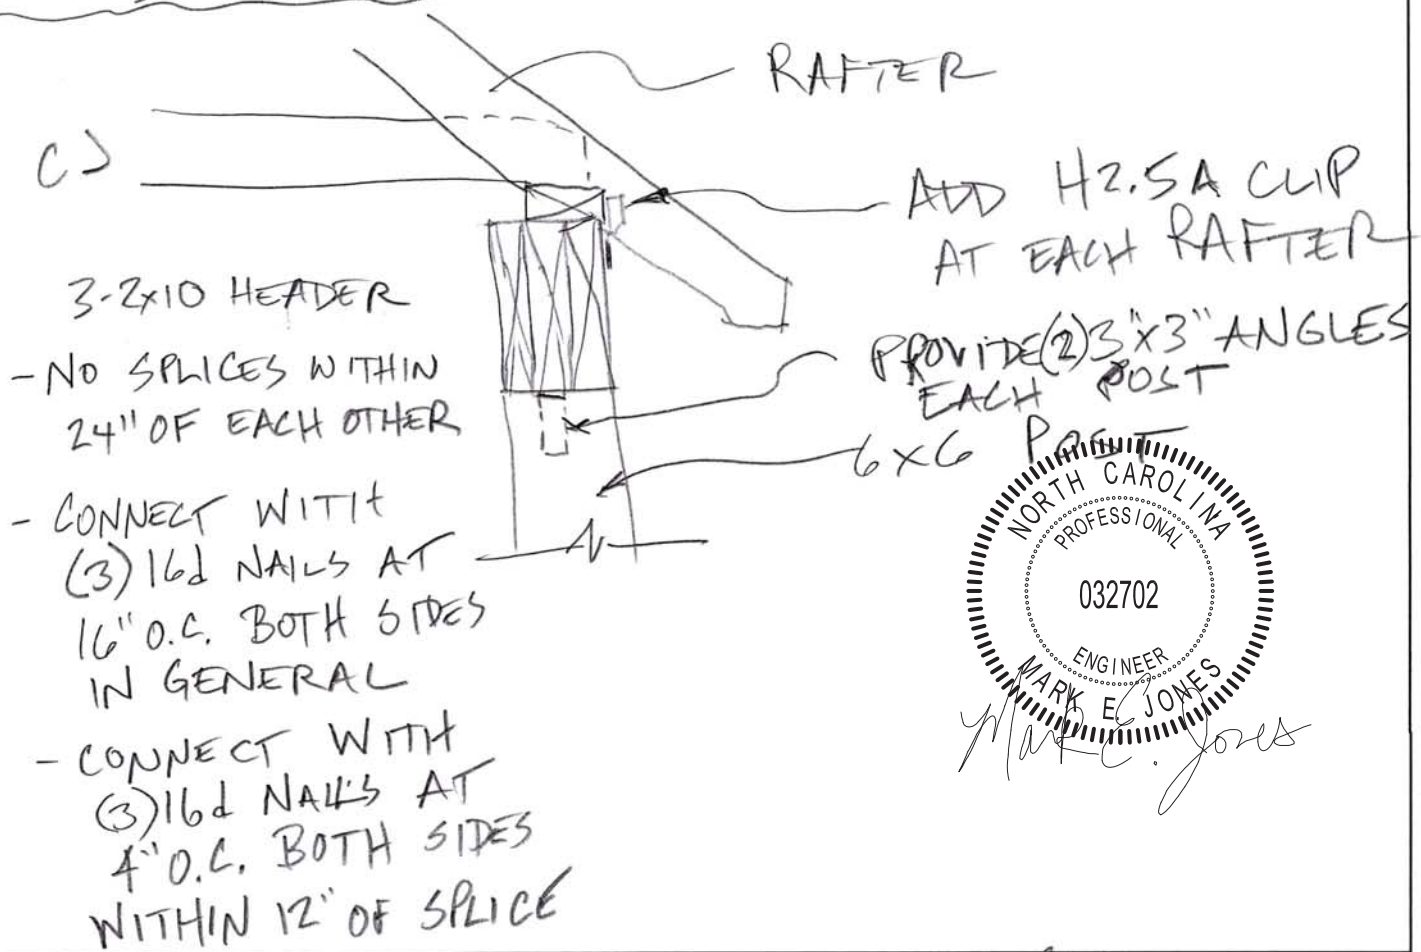 RAFTER
CJ
ADD H2.5A CLIP
AT EACH RAFTER
3-2x10 HEADER
- NO SPLICES WITHIN
24" OF EACH OTHER
- CONNECT WITH
(3) 16d NAILS AT
16" O.C. BOTH SIDES
IN GENERAL
- CONNECT WITH
(3) 16d NAILS AT
4" O.C. BOTH SIDES
WITHIN 12" OF SPLICE
PROVIDE (2) 3"x3" ANGLES
EACH POST
6x6 POST
NORTH CAROLINA
PROFESSIONAL
032702
ENGINEER
MARK E. JONES
Mark E. Jones